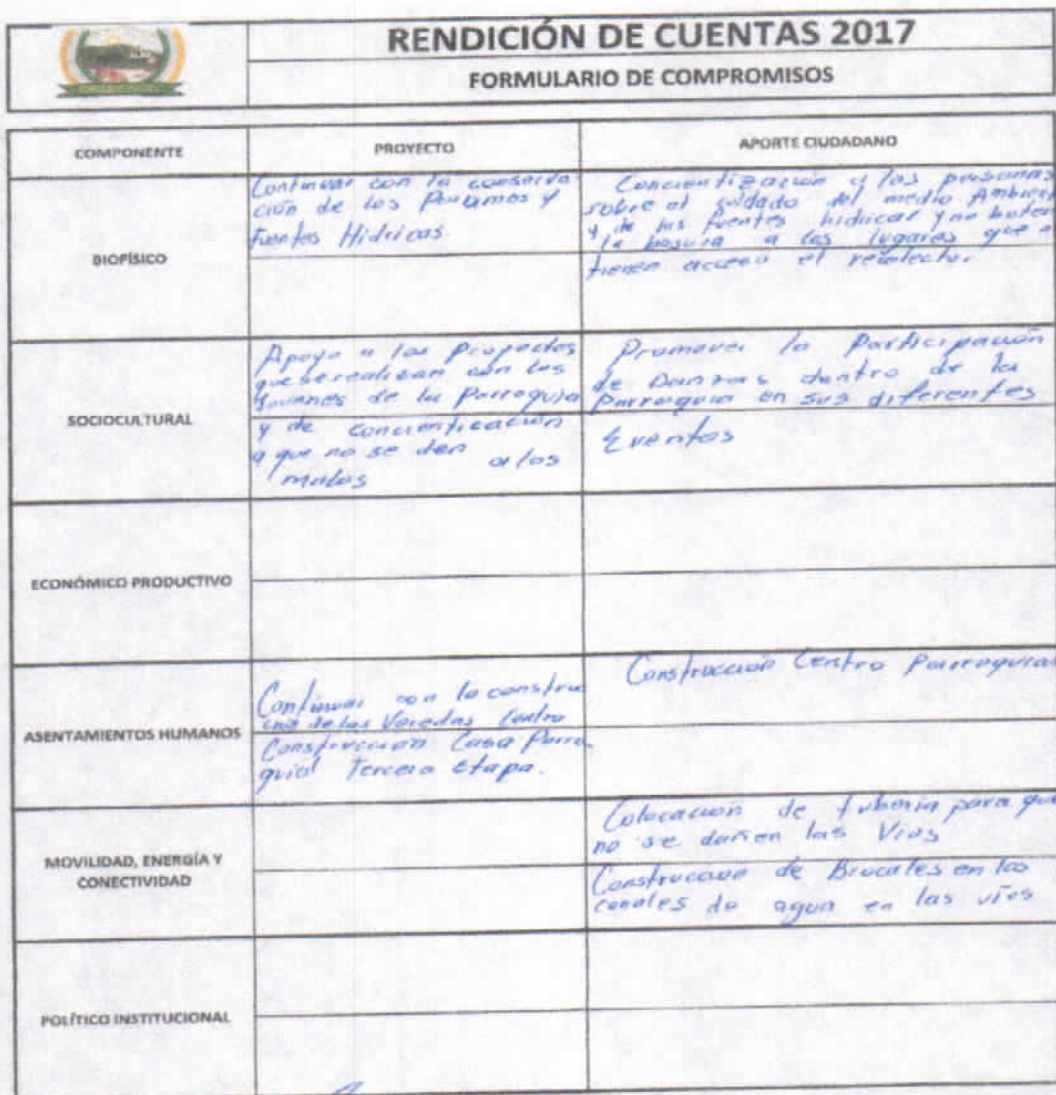 RENDICIÓN DE CUENTAS 2017
FORMULARIO DE COMPROMISOS
COMPONENTE
PROYECTO
APORTE CIUDADANO
BIOFÍSICO
Continuar con la conserva-
ción de los Paramos y
Fuentes Hidricas.
Concientización a las personas
sobre el cuidado del medio Ambien
y de las fuentes hidricas y no boten
la basura a los lugares que n
tienen acceso el recolector
SOCIOCULTURAL
Apoyo a los Proyectos
que se realizan con los
Jovenes de la Parroquia
y de concienticación
a que no se den a los
malos
Promover la Participación
de Danzas dentro de la
Parroquia en sus diferentes
Eventos
ECONÓMICO PRODUCTIVO
ASENTAMIENTOS HUMANOS
Continuar con la constru
de las Veredas Centro
Construccion Casa Parro-
quial Tercera Etapa.
Construcción Centro Parroquial
MOVILIDAD, ENERGÍA Y
CONECTIVIDAD
Colocación de tuberia para que
no se dañen las Vias
Construccion de Brocales en los
canales de agua en las vias
POLÍTICO INSTITUCIONAL